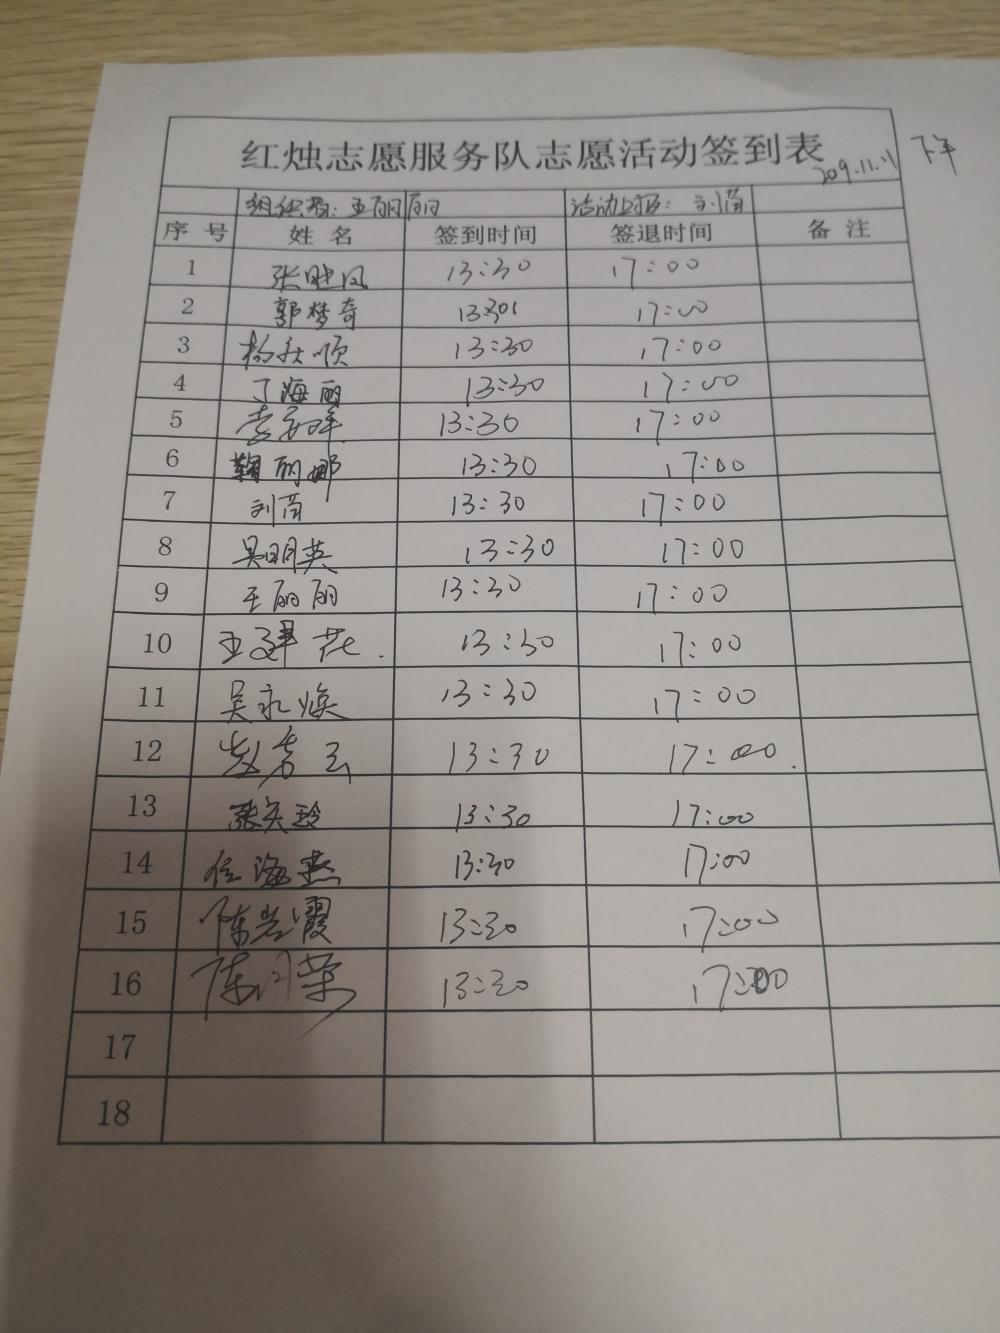 红烛志愿服务队志愿活动签到表
2019.11.11 下午
组织者：王丽丽 活动上报：刘莆
序号 姓名 签到时间 签退时间 备注
1 张晓凤 13:30 17:00
2 郭梦奇 13:30 17:00
3 杨秋顺 13:30 17:00
4 丁海丽 13:30 17:00
5 13:30 17:00
6 鞠丽娜 13:30 17:00
7 刘莆 13:30 17:00
8 吴明英 13:30 17:00
9 王丽丽 13:30 17:00
10 王建花 13:30 17:00
11 吴永焕 13:30 17:00
12 赵秀云 13:30 17:00
13 张美玲 13:30 17:00
14 任海燕 13:30 17:00
15 陈岩霞 13:30 17:00
16 陈 荣 13:30 17:00
17
18